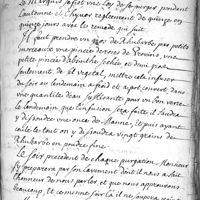 se purger pendant
l'automne et l'hyver reglement de quinze en
quinze jours avec le remede qui suit
Il faut prendre un gros de Rhubarbe par petits
morceaux une pincée de
petite pincée d'absinthe sechée et demi gros
seulement de sel vegetal, mettre cela infuser
du soir au lendemain a froid et a part couvert dans
une quantité d'eau suffisante pour un bon verre
le lendemain que l'infusion sera faite il faudra
y dissoudre une once de Manne, et puis ayant
coulé le tout on y dissoudra vingt grains de
Rhubarbe en poudre fine.
Le soir precedent de chaque purgation Monsieur
se preparera par un lavement dont il nous a fait
l'honneur de nous parler et que nous approuvons
beaucoup, et comme